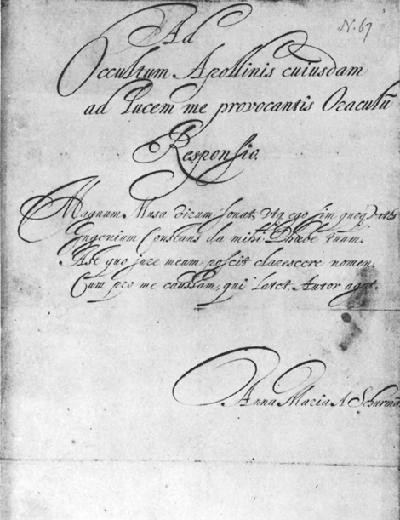 N. 67
Ad
Occultum Apollinis cuiusdam
ad Lucem me provocantis Oraculũ
Responsio.
Magnum Musa virum sonat, ego sim
Ingenium Constans da mihi Phœbe tuum.
Ast quo jure meum poscit clarescere nomen,
Cum pro me caussam, qui latet Autor agat.
Anna Maria A Schurman